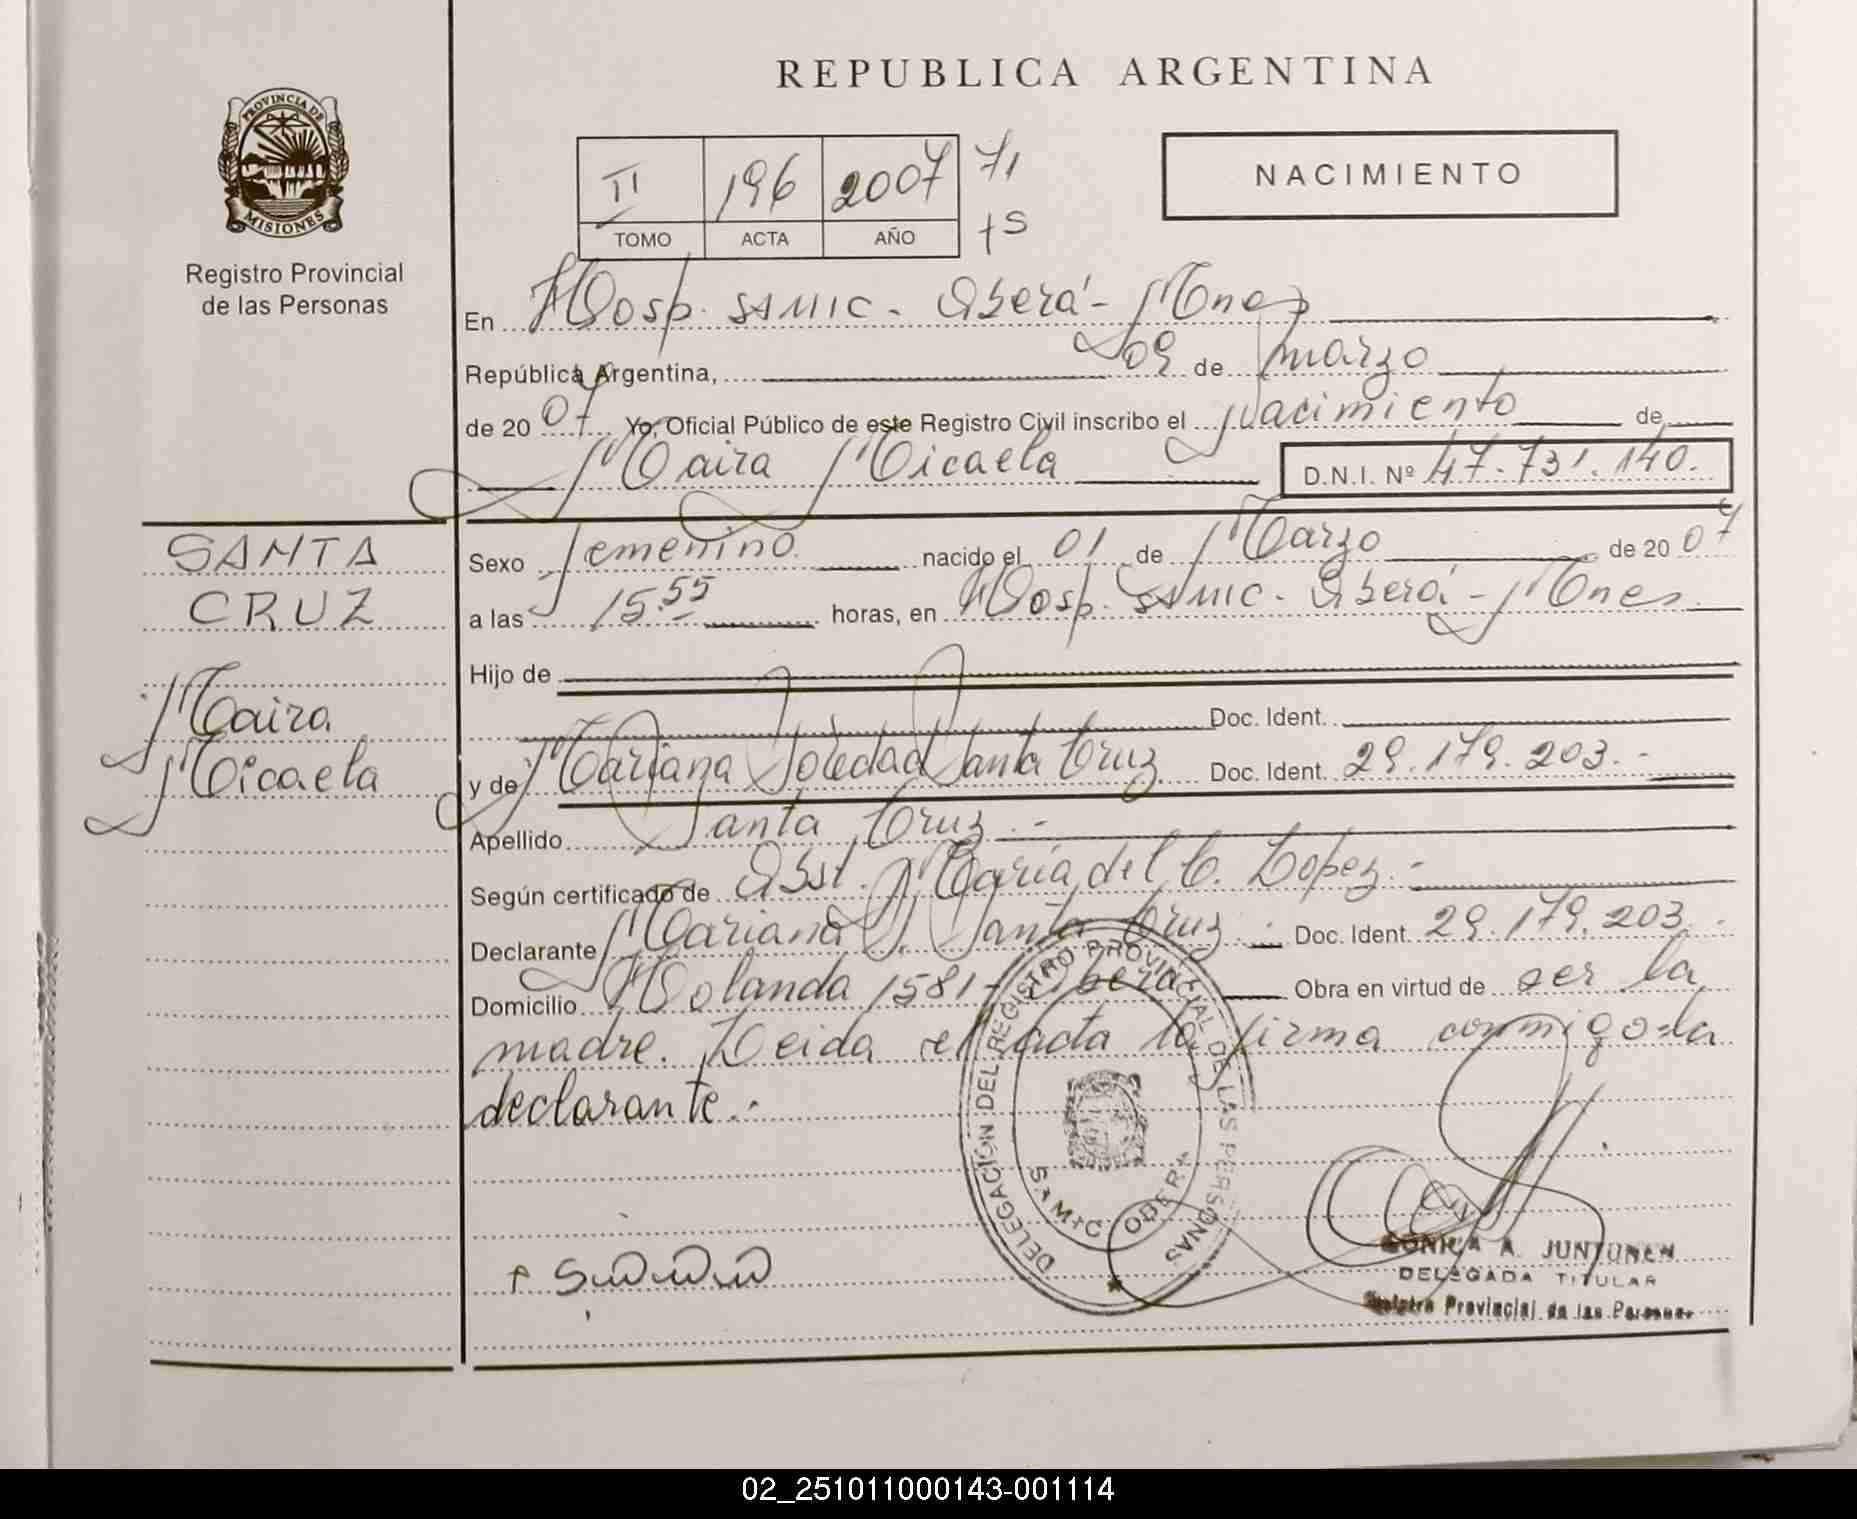 REPUBLICA ARGENTINA
PROVINCIA DE
MISIONES
Registro Provincial
de las Personas
II 196 2007 71
TOMO ACTA AÑO
NACIMIENTO
En Hosp. SAMIC - Oberá - Mnes
República Argentina, 09 de marzo
de 2007 Yo, Oficial Público de este Registro Civil inscribo el nacimiento de
Maira Micaela D.N.I. Nº 47.731.140.
SANTA
CRUZ
Maira
Micaela
Sexo femenino. nacido el 01 de Marzo de 2007
a las 15.55 horas, en Hosp. SAMIC - Oberá - Mnes.
Hijo de
Doc. Ident.
y de Mariana Soledad Santa Cruz Doc. Ident. 29.179.203.-
Apellido Santa Cruz.-
Según certificado de Obst. María del C. Lopez.-
Declarante Mariana S. Santa Cruz Doc. Ident. 29.179.203.-
Domicilio Holanda 1581 - Oberá Obra en virtud de ser la
madre. Leida el acta la firma conmigo la
declarante.-
DELEGACION DEL REGISTRO PROVINCIAL DE LAS PERSONAS
SAMIC OBERA
MONICA A. JUNTUNEN
DELEGADA TITULAR
Registro Provincial de las Personas
02_251011000143-001114